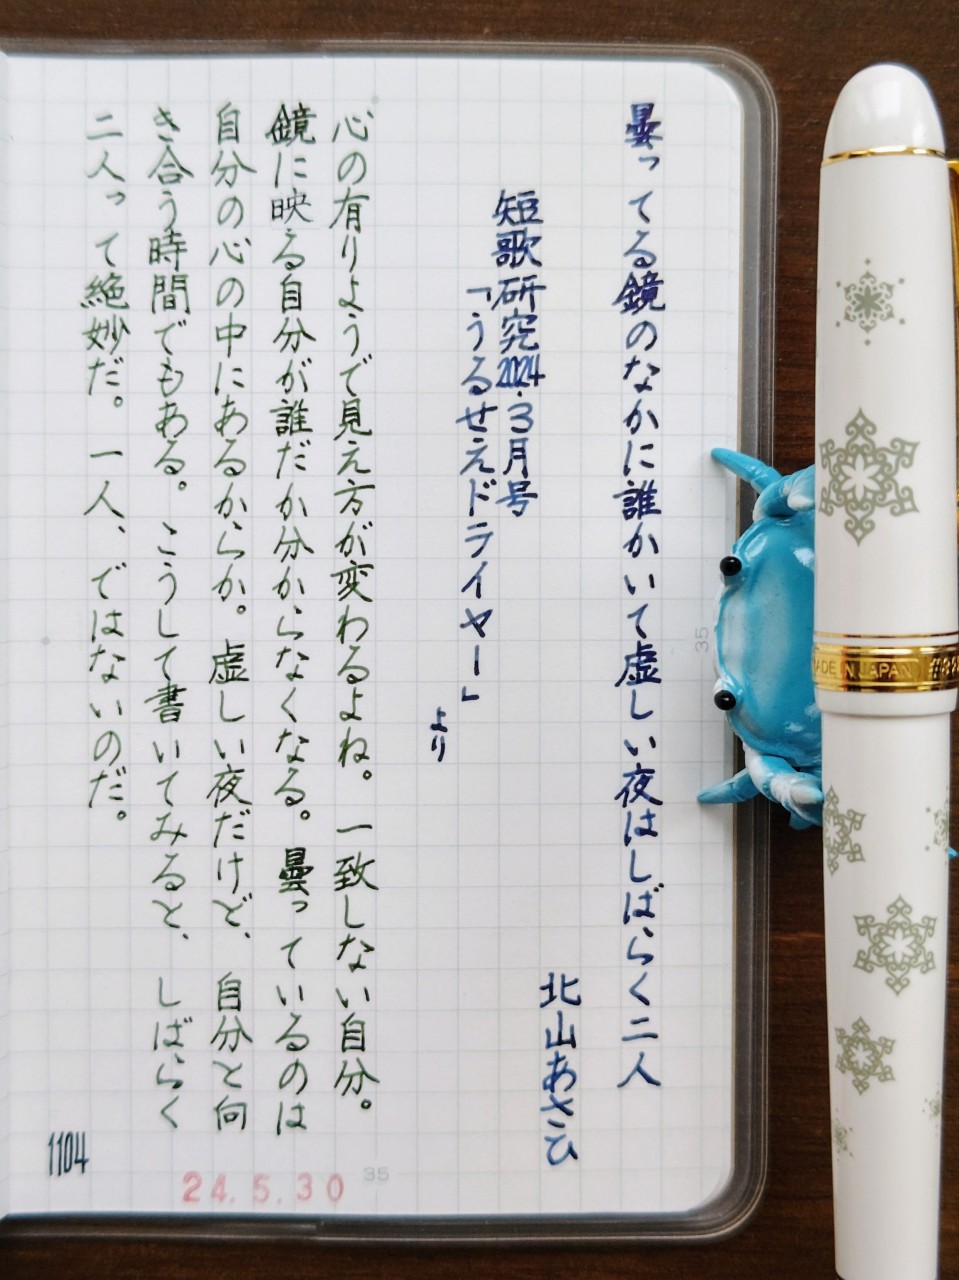 曇ってる鏡のなかに誰かいて虚しい夜はしばらく二人
北山あさひ
短歌研究2024.3月号
「うるせえドライヤー」
より
心の有りようで見え方が変わるよね。一致しない自分。
鏡に映る自分が誰だか分からなくなる。曇っているのは
自分の心の中にあるからか。虚しい夜だけど、自分と向
き合う時間でもある。こうして書いてみると、しばらく
二人って絶妙だ。一人、ではないのだ。
1104
24.5.30
35
35
MADE IN JAPAN